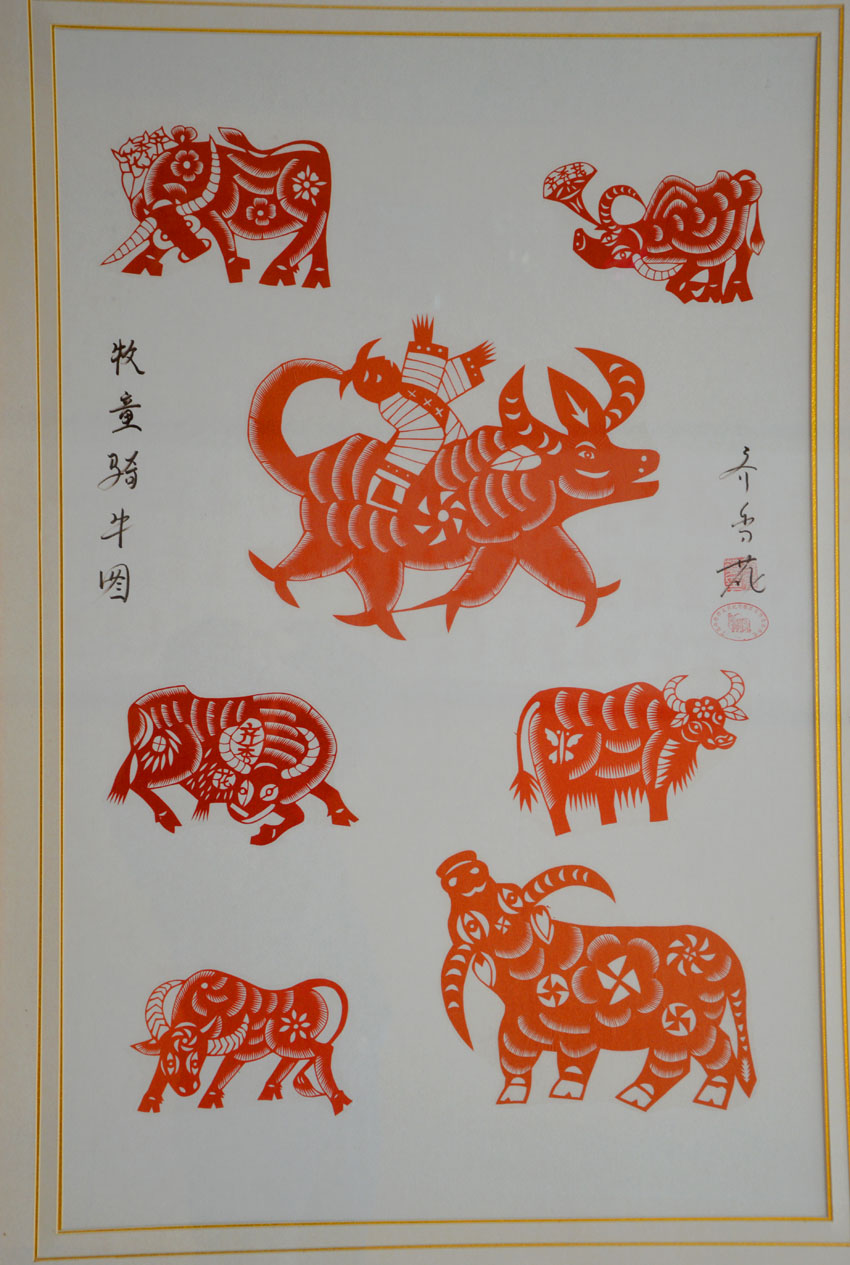 牧童骑牛图
齐秀花
齐秀
花